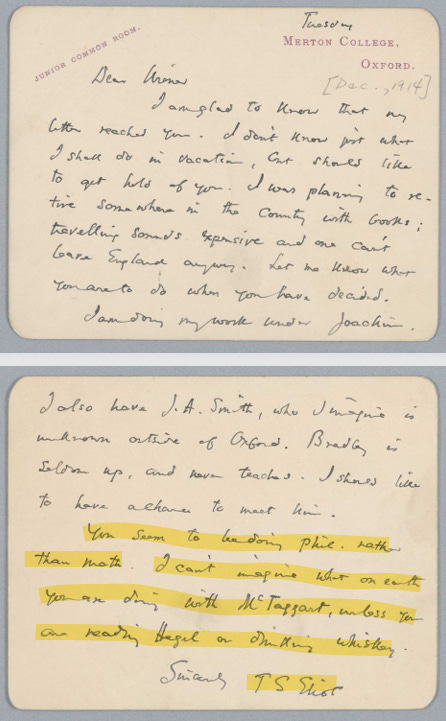 Tuesday
JUNIOR COMMON ROOM.
MERTON COLLEGE,
OXFORD.
[Dec., 1914]
Dear Wiener
I am glad to know that my
letter reached you. I don't know just what
I shall do in vacation, but should like
to get hold of you. I was planning to re-
tire somewhere in the country with books;
travelling sounds expensive and one can't
leave England anyway. Let me know what
you are to do when you have decided.
I am doing my work under Joachim.
I also have J.A. Smith, who I imagine is
unknown outside of Oxford. Bradley is
seldom up, and never teaches. I should like
to have a chance to meet him.
You seem to be doing phil. rather
than math. I can't imagine what on earth
you are doing with McTaggart, unless you
are reading Hegel or drinking whiskey.
Sincerely T S Eliot